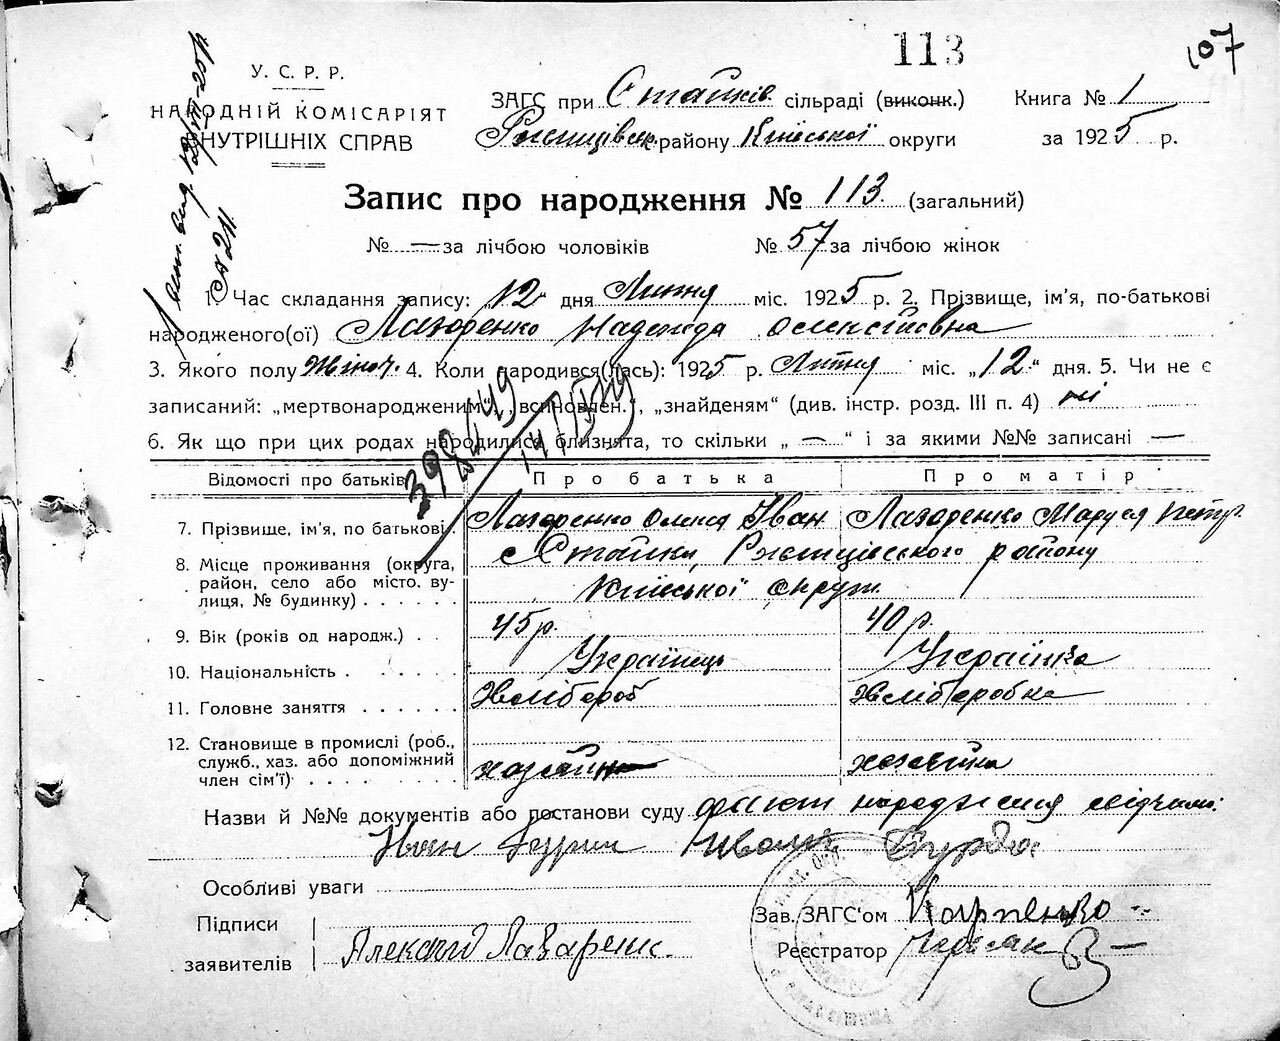 113
107
У. С. Р. Р.
НАРОДНІЙ КОМІСАРІЯТ
ВНУТРІШНІХ СПРАВ
ЗАГС при Стайків сільраді (виконк.)
Ржищівськ. району Київської округи
Книга № 1
за 1925 р.
Запис про народження № 113. (загальний)
№ — за лічбою чоловіків № 57 за лічбою жінок
№ 211
1. Час складання запису: „12“ дня Липня міс. 1925 р. 2. Прізвище, ім'я, по-батькові
народженого(ої) Лазоренко Надежда Олексіївна
3. Якого полу жіноч. 4. Коли народився(лась): 1925 р. Липня міс. „12“ дня. 5. Чи не є
записаний: „мертвонародженим“, „всиновлен.“, „знайденям“ (див. інстр. розд. III п. 4) ні
6. Як що при цих родах народилися близнята, то скільки „ — “ і за якими №№ записані —
398449
Відомості про батьків Про батька Про матір
7. Прізвище, ім'я, по батькові. Лазоренко Олекса Іван Лазоренко Маруся Петр
8. Місце проживання (округа, район, село або місто. вулиця, № будинку) с Стайки, Ржищівського району
Київської округи
9. Вік (років од народж.) 45 р. 40 р.
10. Національність Українець Українка
11. Головне заняття Хлібороб Хліборобка
12. Становище в промислі (роб., служб., хаз. або допоміжний член сім'ї) хазяїн хазяїна
Назви й №№ документів або постанови суду факт народження свідчими:
Іван Бурда
Особливі уваги
Підписи
заявителів Александ Лазаренк.
Зав. ЗАГС'ом Карпенко
Реєстратор